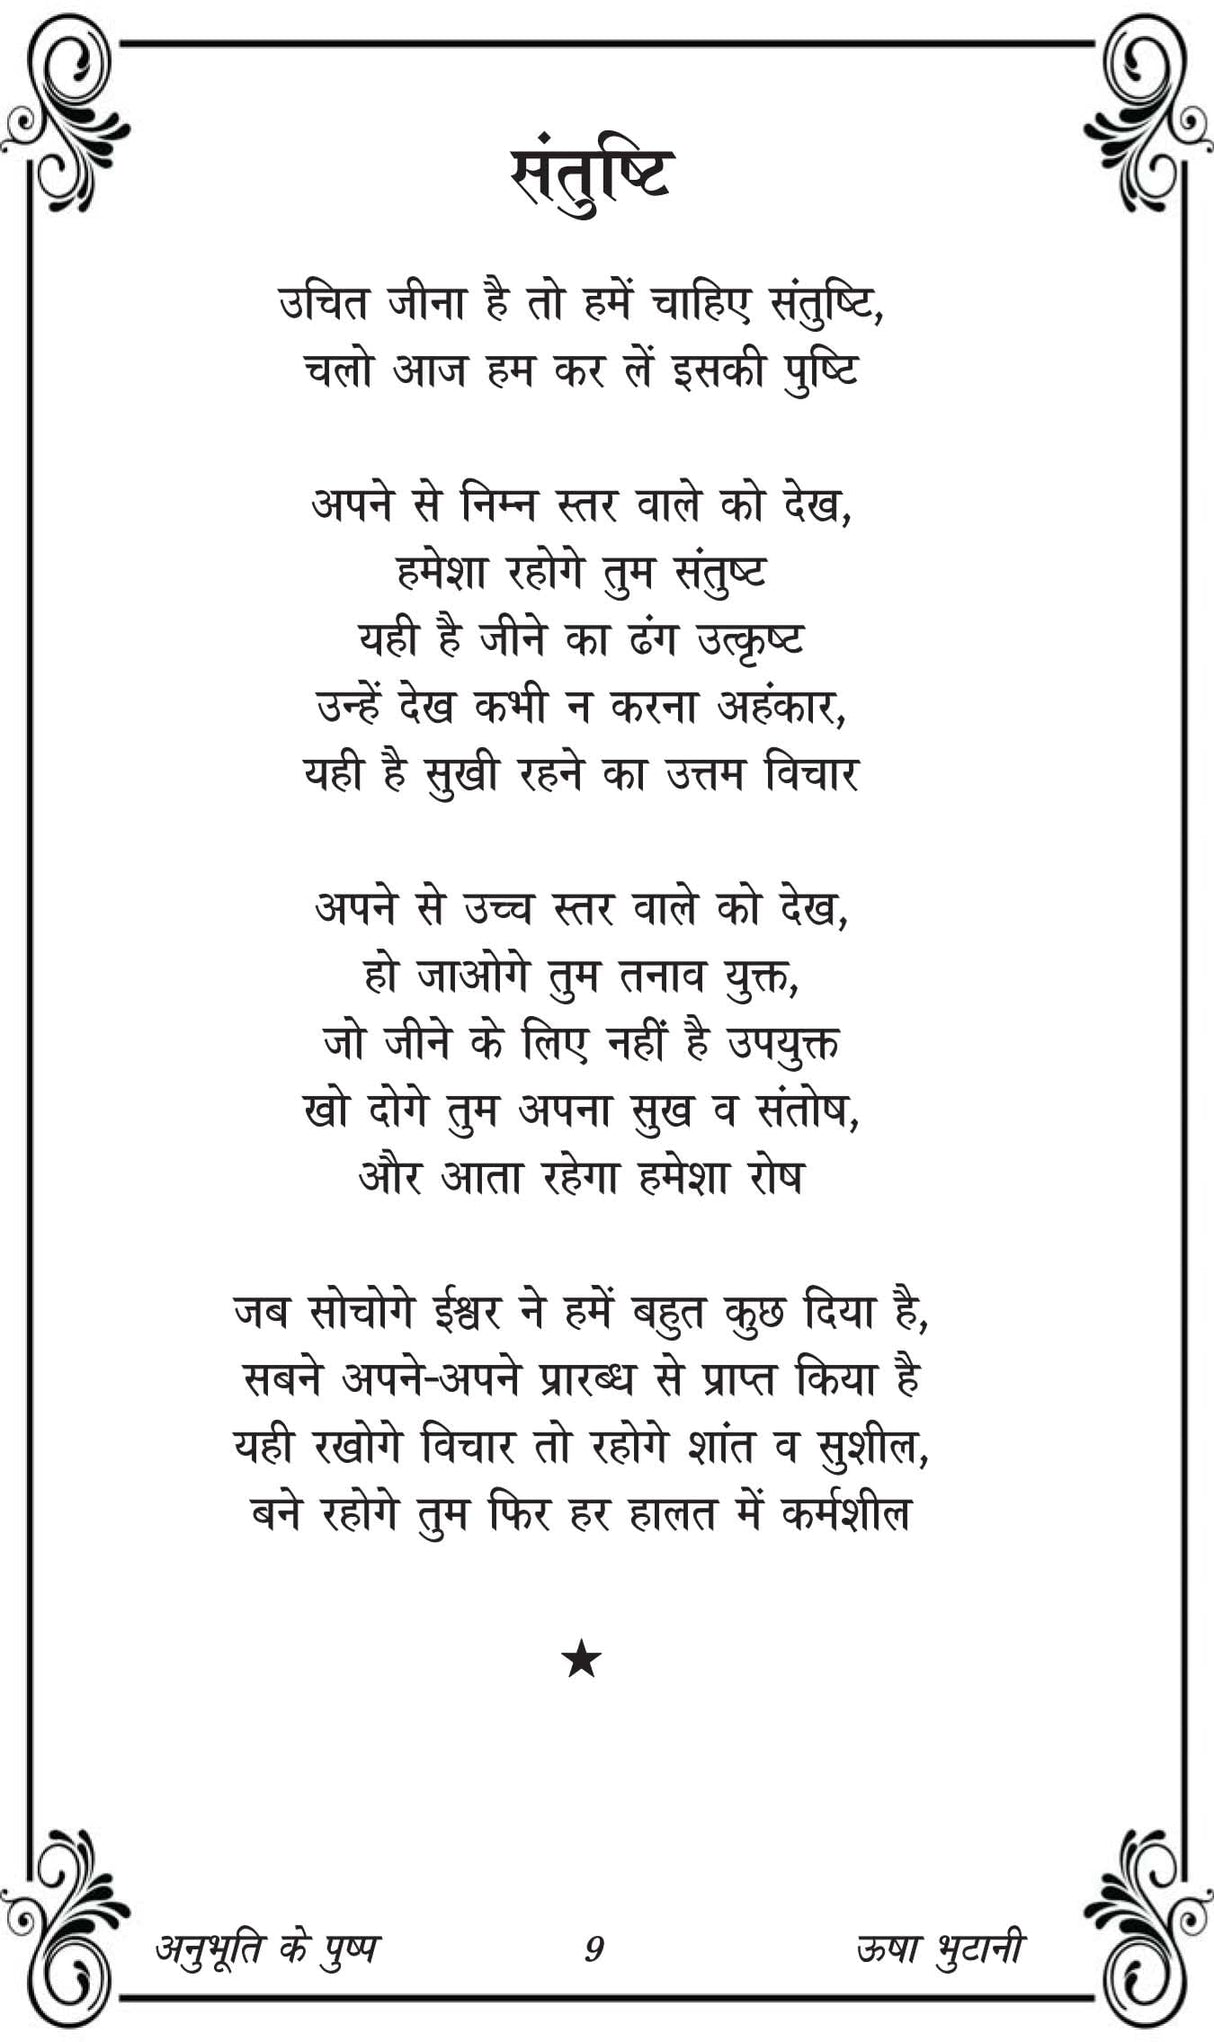 संतुष्टि
उचित जीना है तो हमें चाहिए संतुष्टि,
चलो आज हम कर लें इसकी पुष्टि
अपने से निम्न स्तर वाले को देख,
हमेशा रहोगे तुम संतुष्ट
यही है जीने का ढंग उत्कृष्ट
उन्हें देख कभी न करना अहंकार,
यही है सुखी रहने का उत्तम विचार
अपने से उच्च स्तर वाले को देख,
हो जाओगे तुम तनाव युक्त,
जो जीने के लिए नहीं है उपयुक्त
खो दोगे तुम अपना सुख व संतोष,
और आता रहेगा हमेशा रोष
जब सोचोगे ईश्वर ने हमें बहुत कुछ दिया है,
सबने अपने-अपने प्रारब्ध से प्राप्त किया है
यही रखोगे विचार तो रहोगे शांत व सुशील,
बने रहोगे तुम फिर हर हालत में कर्मशील
★
अनुभूति के पुष्प 9 ऊषा भुटानी